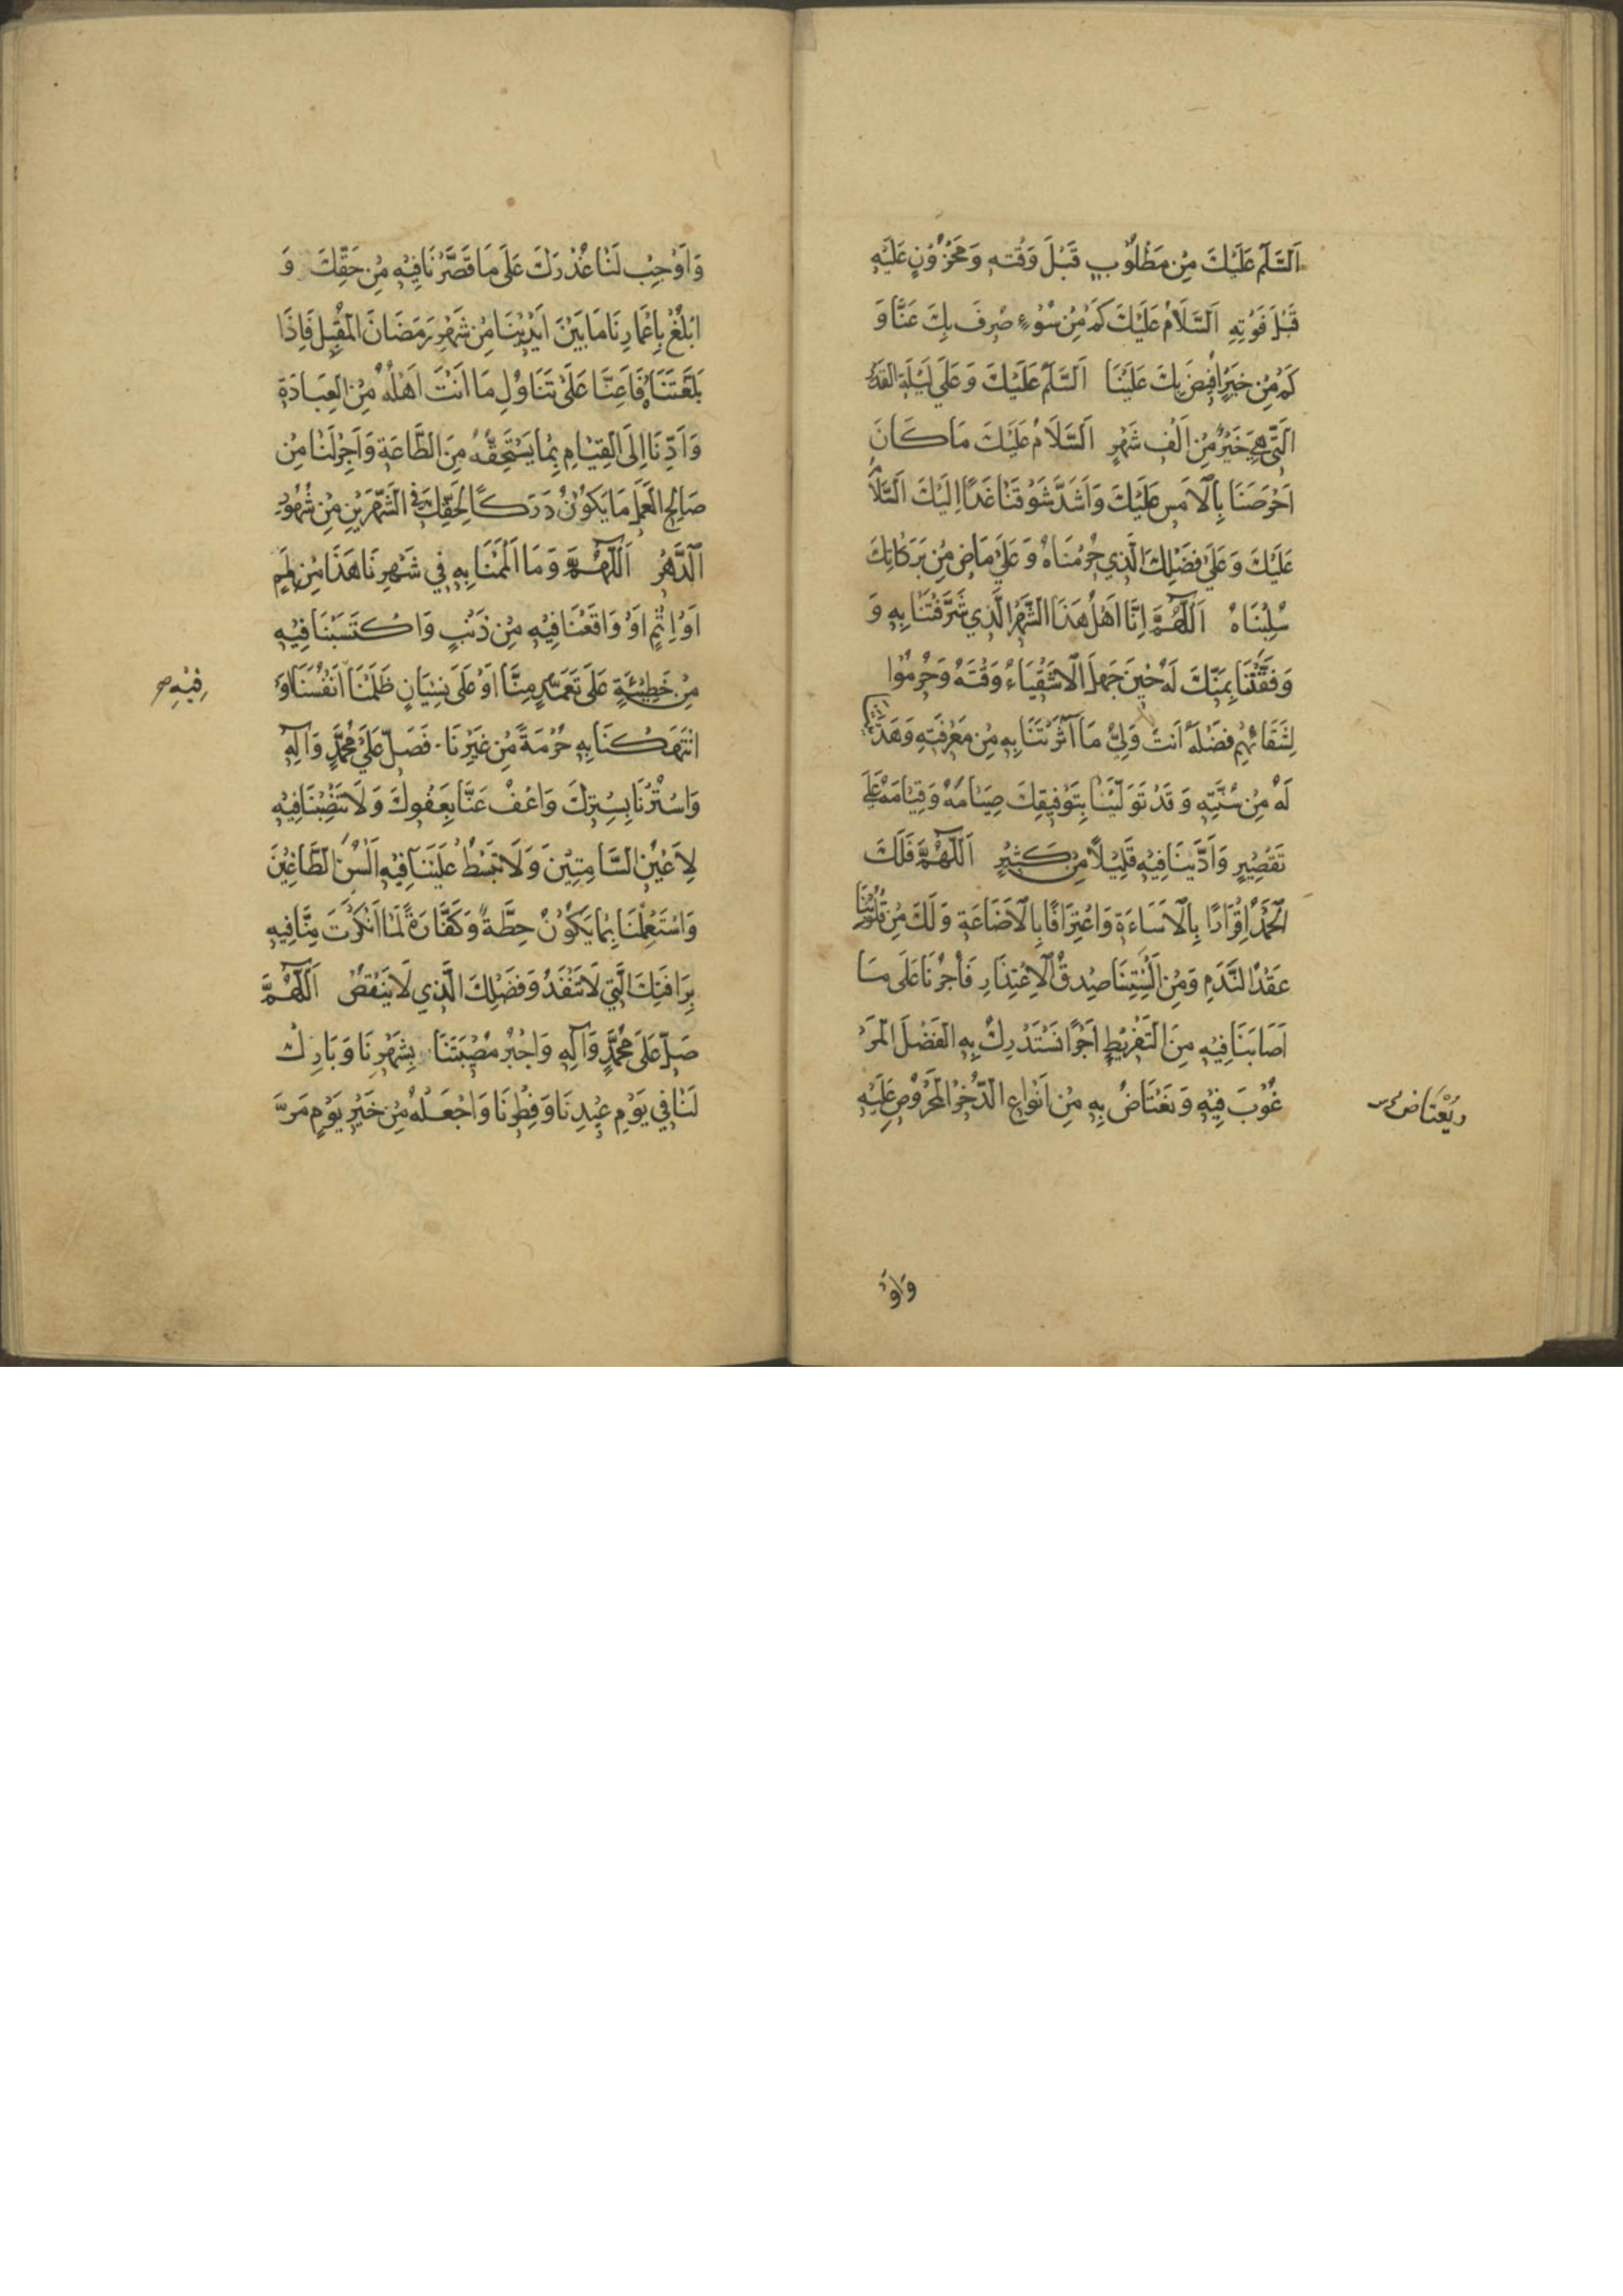 اَلسَّلَمُ عَلَيْكَ مِنْ مَطْلُوْبٍ قَبْلَ وَقْتِهِ وَمَحْزُوْنٍ عَلَيْهِ
قَبْلَ فَوْتِهِ اَلسَّلَامُ عَلَيْكَ كَمْ مِنْ سُوْءٍ صُرِفَ بِكَ عَنَّا وَ
كَمْ مِنْ خَيْرٍ اُفِيْضَ بِكَ عَلَيْنَا اَلسَّلَمُ عَلَيْكَ وَعَلَي لَيْلَةِ الْقَدْرِ
اَلَّتِي هِيَ خَيْرٌ مِنْ اَلْفِ شَهْرٍ اَلسَّلَامُ عَلَيْكَ مَا كَانَ
اَحْرَصَنَا بِالْاَمْسِ عَلَيْكَ وَاَشَدَّ شَوْقَنَا غَدًا اِلَيْكَ اَلسَّلَامُ
عَلَيْكَ وَعَلَي فَضْلِكَ الَّذِي حُرِمْنَاهُ وَعَلَي مَاضٍ مِنْ بَرَكَاتِكَ
سُلِبْنَاهُ اَللّٰهُمَّ اِنَّا اَهْلُ هَذَا الشَّهْرِ الَّذِي شَرَّفْتَنَا بِهِ وَ
وَفَّقْتَنَا بِمَنِّكَ لَهُ حِيْنَ جَهِلَ الْاَشْقِيَاءُ وَقْتَهُ وَحُرِمُوا
لِشَقَائِهِمْ فَضْلَهُ اَنْتَ وَلِيُّ مَا آثَرْتَنَا بِهِ مِنْ مَعْرِفَتِهِ وَهَدَيْتَنَا
لَهُ مِنْ سُنَّتِهِ وَقَدْ تَوَلَّيْنَا بِتَوْفِيقِكَ صِيَامَهُ وَقِيَامَهُ عَلَي
تَقْصِيْرٍ وَاَدَّيْنَا فِيْهِ قَلِيْلًا مِنْ كَثِيْرٍ اَللّٰهُمَّ فَلَكَ
الْحَمْدُ اِقْرَارًا بِالْاَسَاءَةِ وَاعْتِرَافًا بِالْاَضَاعَةِ وَلَكَ مِنْ قُلُوْبِنَا
عَقْدُ النَّدَمِ وَمِنْ اَلْسِنَتِنَا صِدْقُ الْاِعْتِذَارِ فَأْجُرْنَا عَلَى مَا
اَصَابَنَا فِيْهِ مِنَ التَّفْرِيْطِ اَجْرًا نَسْتَدْرِكُ بِهِ الْفَضْلَ الْمَرْ
غُوْبَ فِيْهِ وَنَعْتَاضُ بِهِ مِنْ اَنْوَاعِ الذُّخْرِ الْمَحْرُوْصِ عَلَيْهِ
وَيُعْتَاضُ
وَاَوْ
وَاَوْجِبْ لَنَا عُذْرَكَ عَلَى مَا قَصَّرْنَا فِيْهِ مِنْ حَقِّكَ وَ
ابْلُغْ بِاَعْمَارِنَا مَا بَيْنَ اَيْدِيْنَا مِنْ شَهْرِ رَمَضَانَ الْمُقْبِلِ فَاِذَا
بَلَّغْتَنَاهُ فَاَعِنَّا عَلَى تَنَاوُلِ مَا اَنْتَ اَهْلُهُ مِنَ الْعِبَادَةِ
وَاَدِّنَا اِلَى الْقِيَامِ بِمَا يَسْتَحِقُّهُ مِنَ الطَّاعَةِ وَاَجْرِ لَنَا مِنْ
صَالِحِ الْعَمَلِ مَا يَكُوْنُ دَرَكًا لِحَقِّكَ فِي الشَّهْرَيْنِ مِنْ شُهُوْرِ
الدَّهْرِ اَللّٰهُمَّ وَمَا اَلْمَمْنَا بِهِ فِي شَهْرِنَا هَذَا مِنْ لَمَمٍ
اَوْ اِثْمٍ اَوْ وَاقَعْنَا فِيْهِ مِنْ ذَنْبٍ وَاكْتَسَبْنَا فِيْهِ
مِنْ خَطِيْئَةٍ عَلَى تَعَمُّدٍ مِنَّا اَوْ عَلَى نِسْيَانٍ ظَلَمْنَا اَنْفُسَنَا اَوِ
فِيْهِ
انْتَهَكْنَا بِهِ حُرْمَةً مِنْ غَيْرِنَا فَصَلِّ عَلَي مُحَمَّدٍ وَآلِهِ
وَاسْتُرْنَا بِسِتْرِكَ وَاعْفُ عَنَّا بِعَفْوِكَ وَلَا تَنْصِبْنَا فِيْهِ
لِاَعْيُنِ الشَّامِتِيْنَ وَلَا تَبْسُطْ عَلَيْنَا فِيْهِ اَلْسُنَ الطَّاغِيْنَ
وَاسْتَعْمِلْنَا بِمَا يَكُوْنُ حِطَّةً وَكَفَّارَةً لِمَا اَنْكَرْتَ مِنَّا فِيْهِ
بِرَافَتِكَ الَّتِي لَا تَنْفَدُ وَفَضْلِكَ الَّذِي لَا يَنْقُصُ اَللّٰهُمَّ
صَلِّ عَلَى مُحَمَّدٍ وَآلِهِ وَاجْبُرْ مُصِيْبَتَنَا بِشَهْرِنَا وَبَارِكْ
لَنَا فِي يَوْمِ عِيْدِنَا وَفِطْرِنَا وَاجْعَلْهُ مِنْ خَيْرِ يَوْمٍ مَرَّ